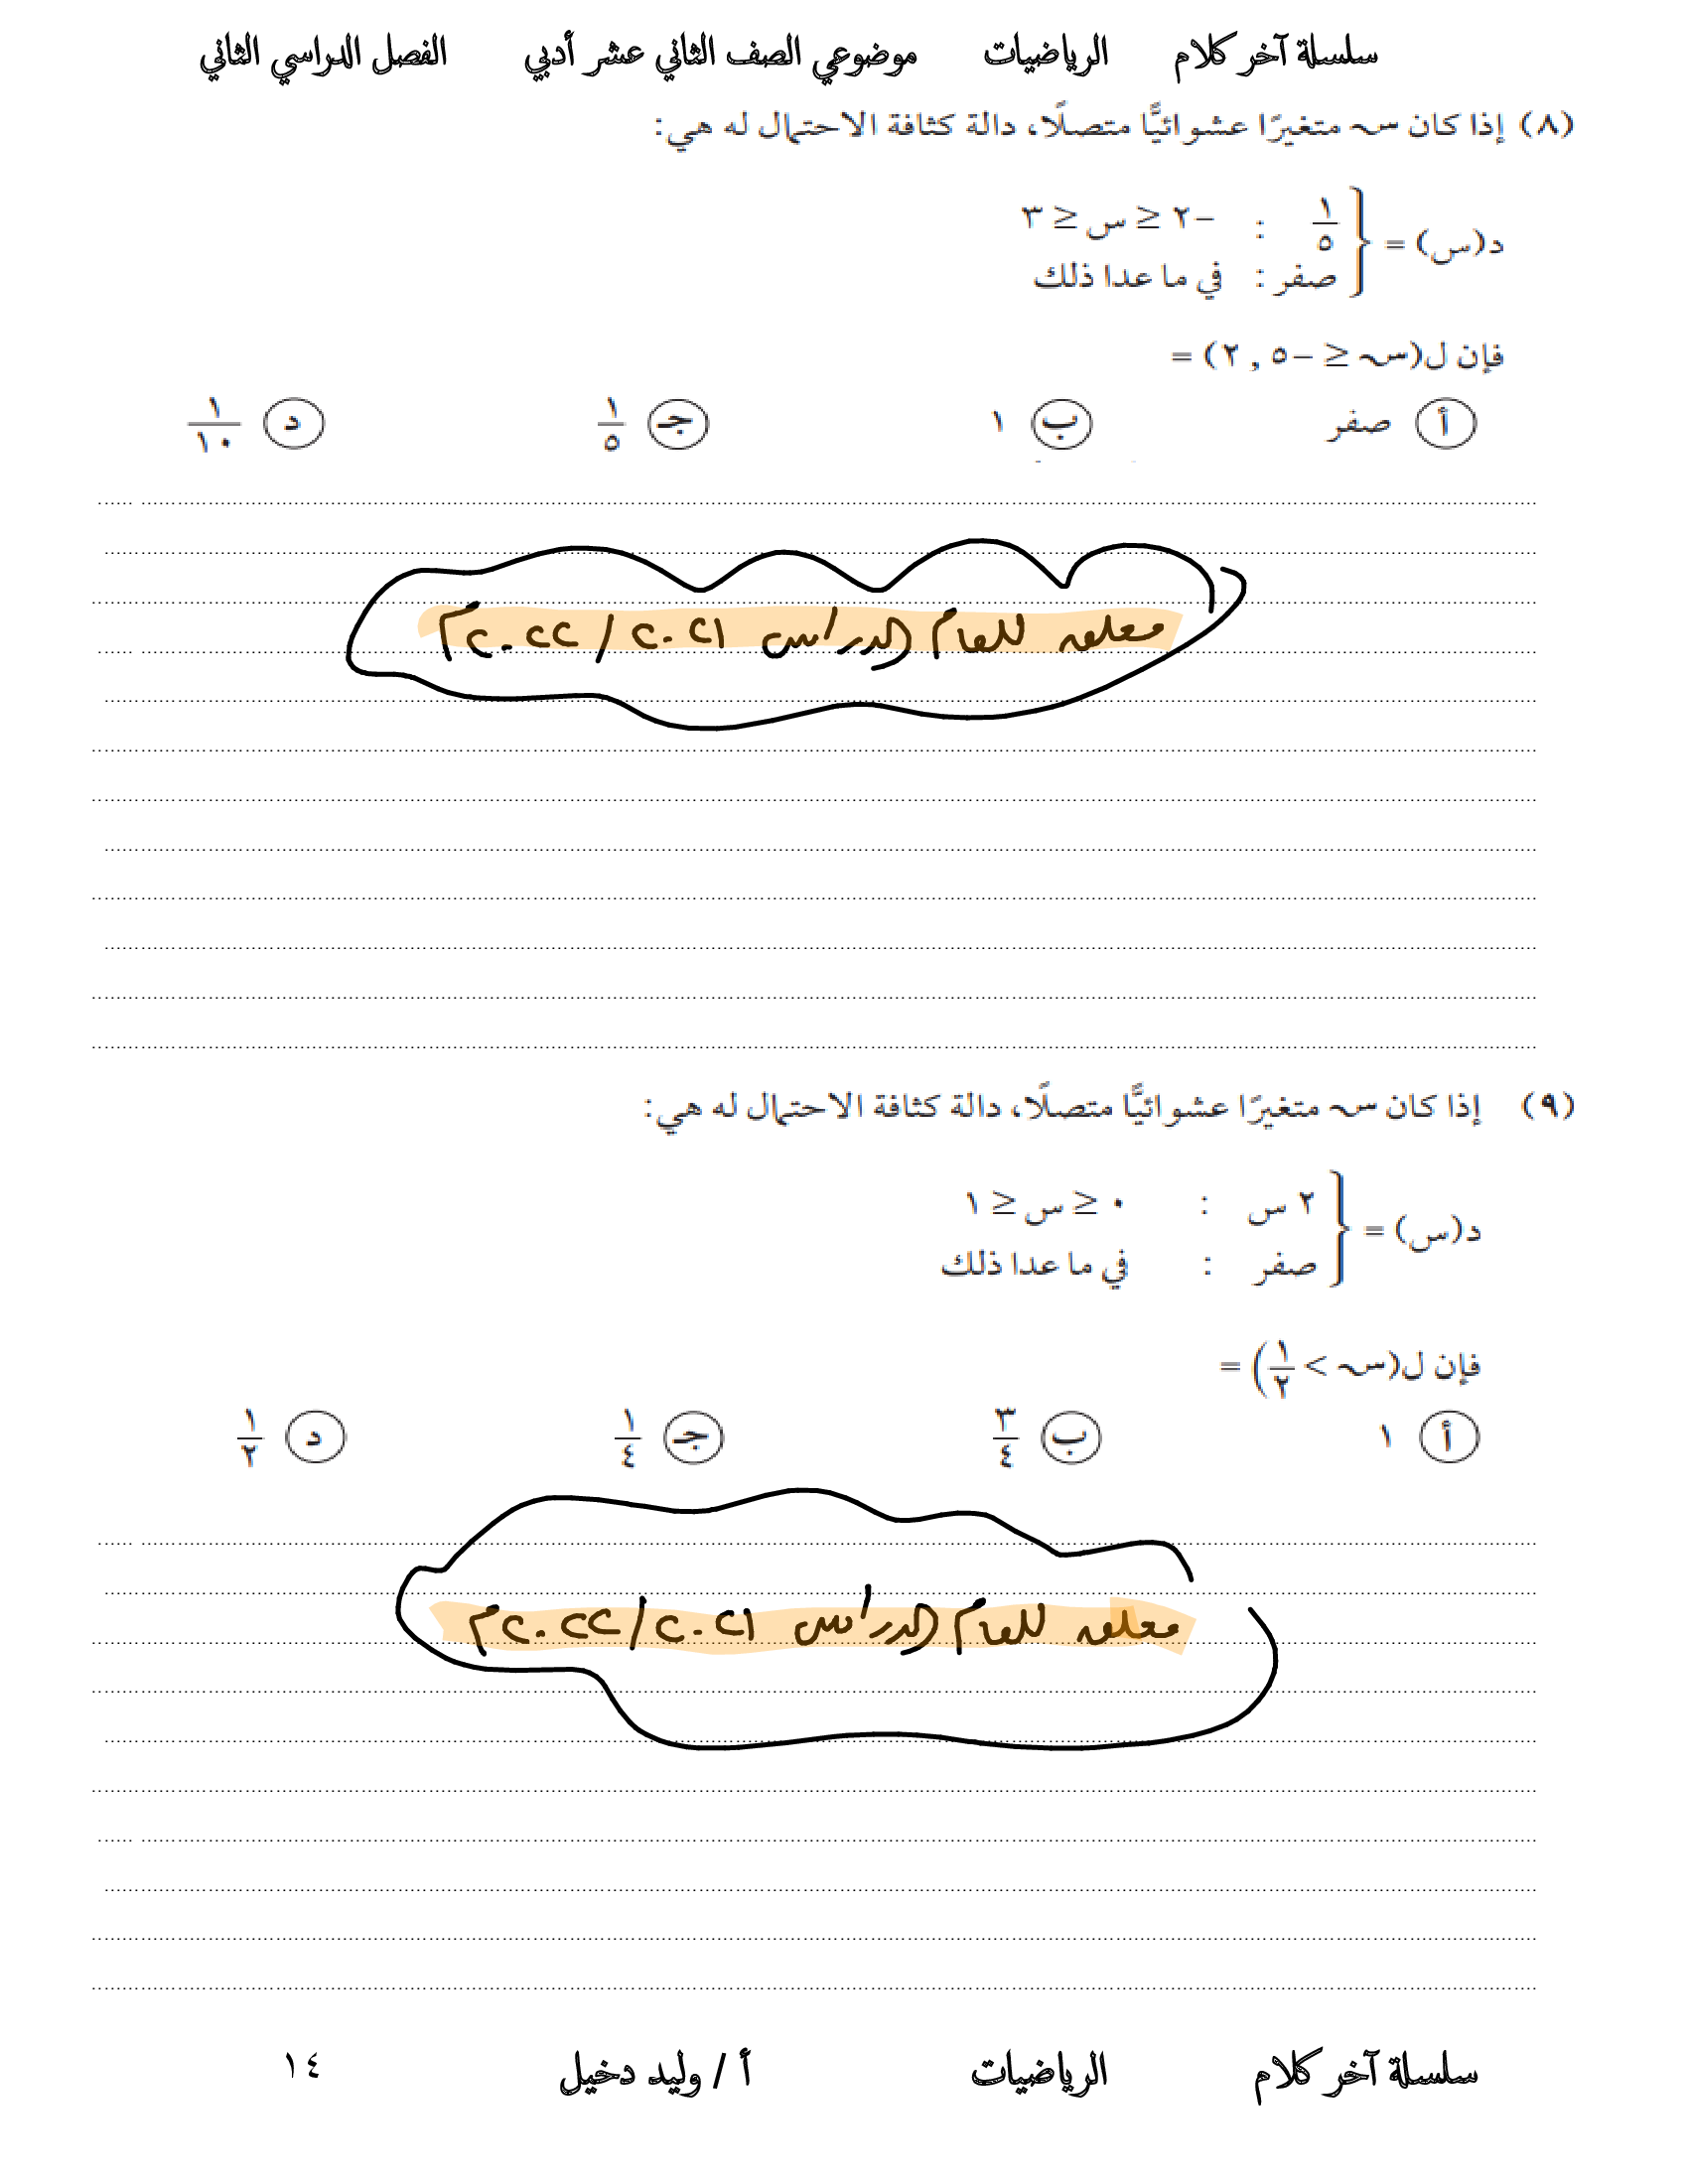 سلسلة آخر كلام الرياضيات موضوعي الصف الثاني عشر أدبي الفصل الدراسي الثاني
(٨) إذا كان سـ متغيرًا عشوائيًّا متصلًا، دالة كثافة الاحتمال له هي:
د(س) = { ١/٥ : -٢ ≤ س ≤ ٣
صفر : في ما عدا ذلك
فإن ل(سـ ≤ -٢,٥) =
أ صفر ب ١ جـ ١/٥ د ١/١٠
معلق للعام الدراسي ٢٠٢١ / ٢٠٢٢م
(٩) إذا كان سـ متغيرًا عشوائيًّا متصلًا، دالة كثافة الاحتمال له هي:
د(س) = { ٢ س : ٠ ≤ س ≤ ١
صفر : في ما عدا ذلك
فإن ل(سـ > ١/٢) =
أ ١ ب ٣/٤ جـ ١/٤ د ١/٢
معلق للعام الدراسي ٢٠٢١ / ٢٠٢٢م
سلسلة آخر كلام الرياضيات أ / وليد دخيل ١٤